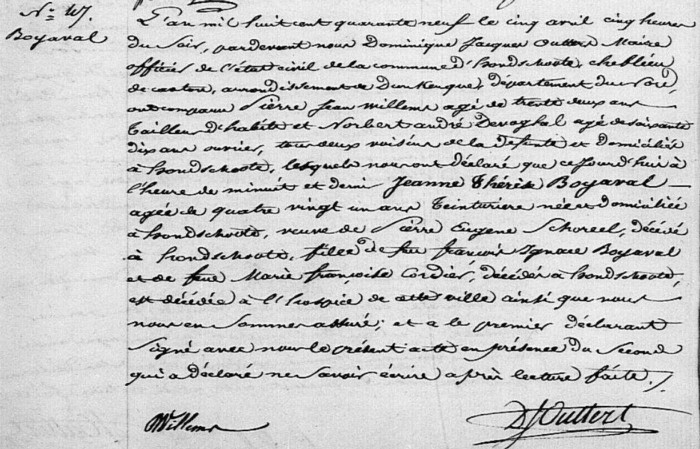 N.° 47.
Boyaval
L'an mil huit cent quarante neuf le cinq avril cinq heures
du soir, pardevant nous Dominique Jacques Outters Maire
officier de l'état civil de la commune d'hondschoote, chef lieu
de canton, arrondissement de Dunkerque, département du Nord,
ont comparu Pierre Jean Willems agé de trente deux ans
tailleur d'habits et Norbert andré Devaghel agé de soixante
dix ans ouvrier, tous deux voisins de la défunte et domiciliés
à hondschoote, lesquels nous ont déclaré que ce jourd'hui à
l'heure de minuit et demi Jeanne Thérèse Boyaval
agée de quatre vingt un ans Teinturiere née et domiciliée
à hondschoote, veuve de Pierre Eugene Schoreel, décédé
à hondschoote, fille de feu françois Ignace Boyaval
et de feue Marie françoise Cordier, décédés à hondschoote,
est décédée à l'hospice de cette ville ainsi que nous
nous en sommes assuré; et a le premier déclarant
signé avec nous le présent acte en présence du second
qui a déclaré ne savoir écrire après lecture faite.
Willems
DJOutters